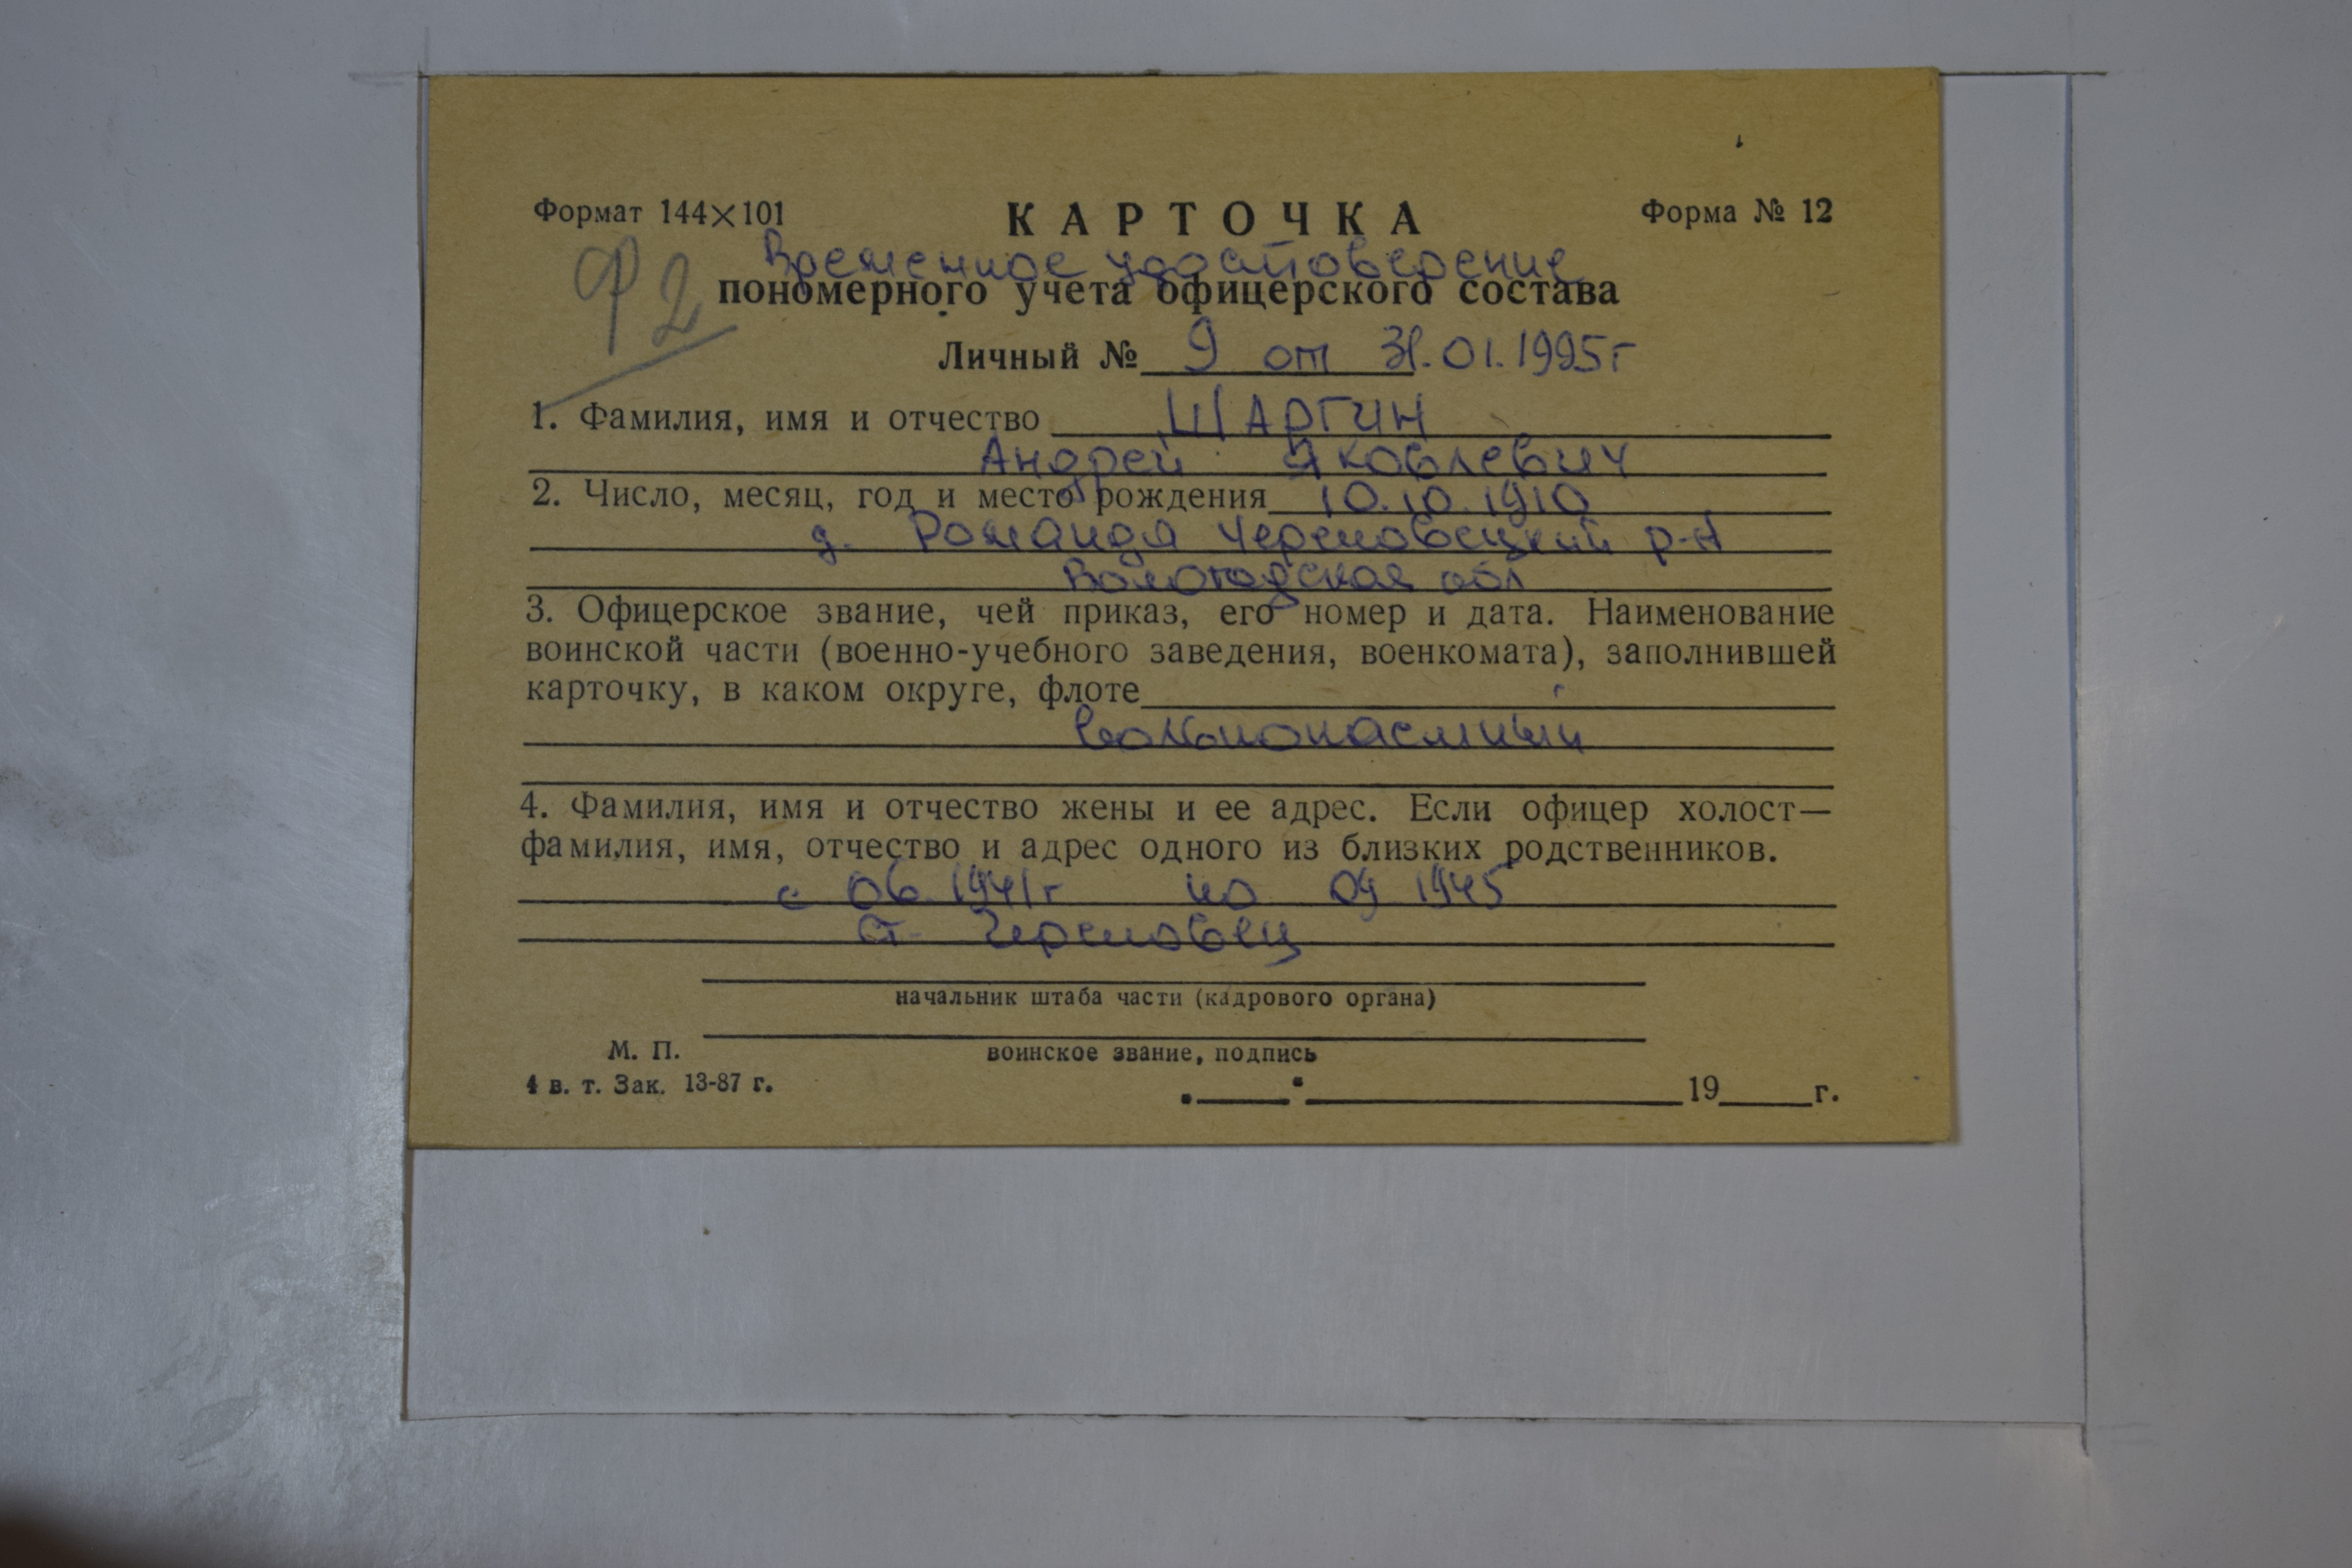 Формат 144×101 КАРТОЧКА Форма № 12
Ф2 Временное удостоверение
пономерного учета офицерского состава
Личный № 9 от 31.01.1995г
1. Фамилия, имя и отчество ШАРГИН
Андрей Яковлевич
2. Число, месяц, год и место рождения 10.10.1910
д. Романда Череповецкий р-н
Вологодская обл
3. Офицерское звание, чей приказ, его номер и дата. Наименование
воинской части (военно-учебного заведения, военкомата), заполнившей
карточку, в каком округе, флоте
вольнонаемный
4. Фамилия, имя и отчество жены и ее адрес. Если офицер холост—
фамилия, имя, отчество и адрес одного из близких родственников.
с 06.1941г по 09 1945
ст. Череповец
начальник штаба части (кадрового органа)
М. П. воинское звание, подпись
4 в. т. Зак. 13-87 г.
19 г.